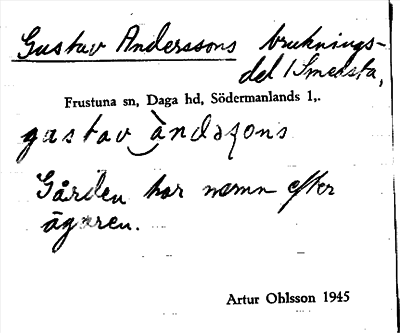 Gustav Anderssons bruknings-
del i Smedsta,
Frustuna sn, Daga hd, Södermanlands l,.
gustav àndaʃons
Gården har namn efter
ägaren.
Artur Ohlsson 1945